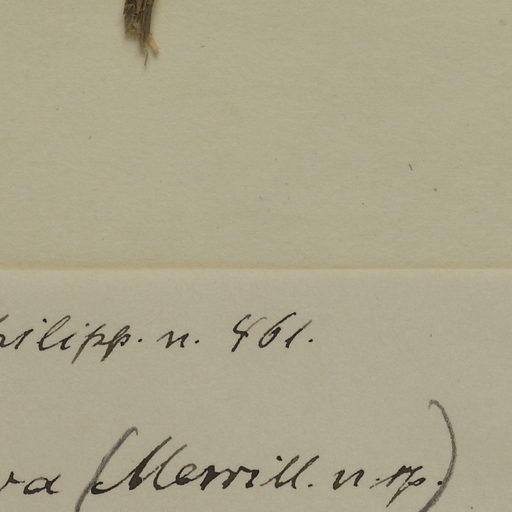 hilipp. n. 461.
va (Merrill. n. sp.)